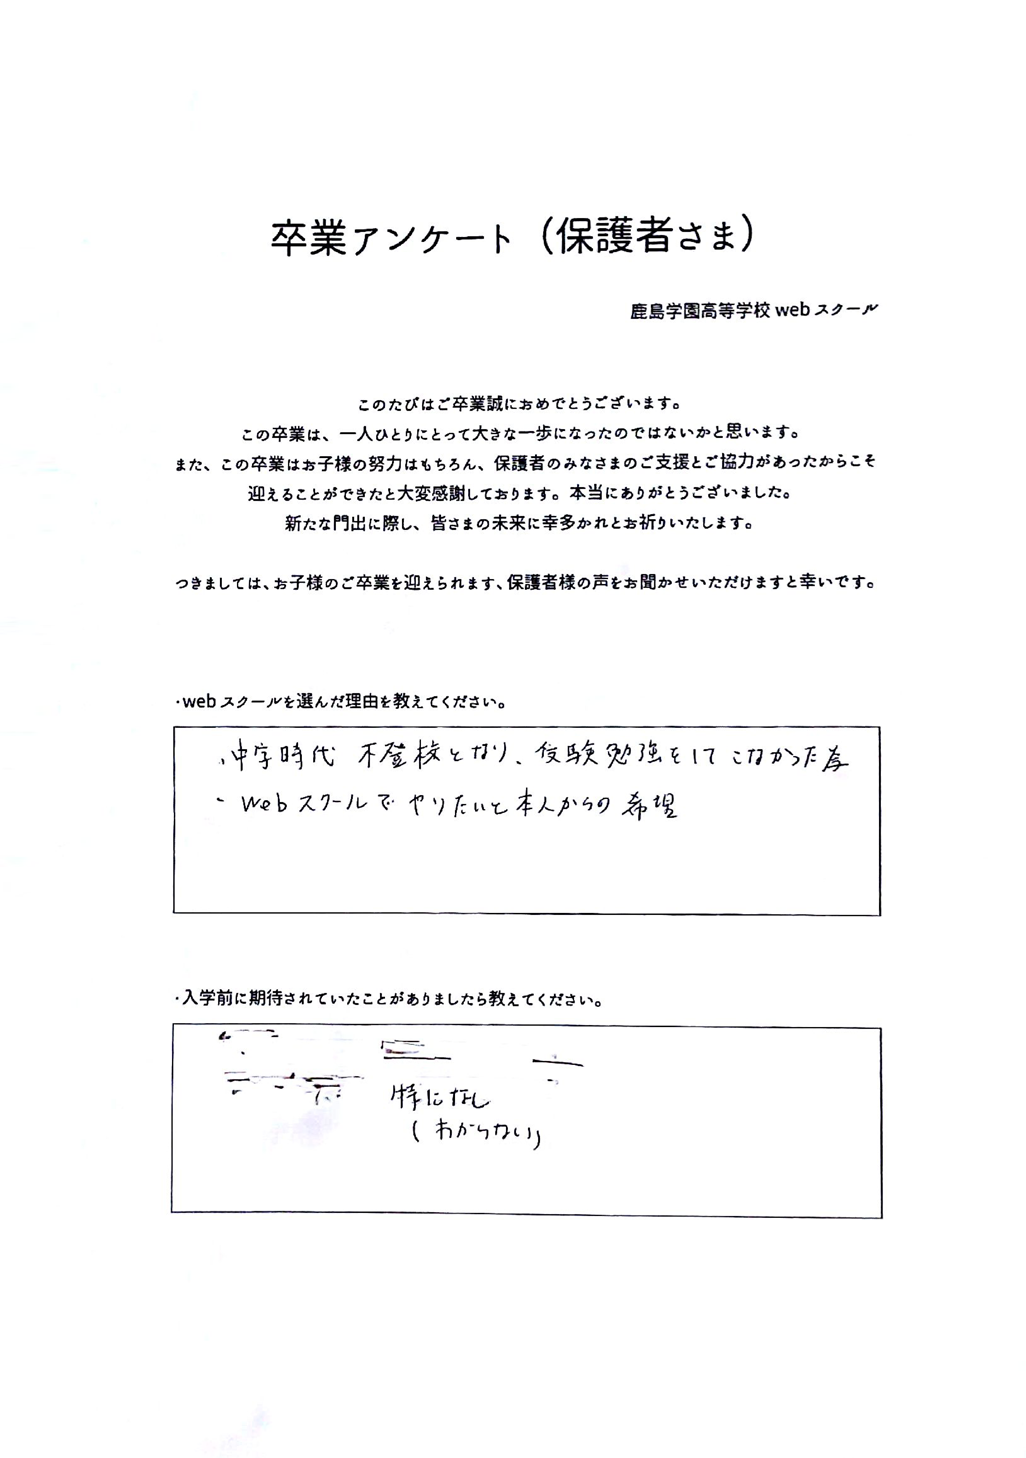 卒業アンケート（保護者さま）
鹿島学園高等学校 web スクール
このたびはご卒業誠におめでとうございます。
この卒業は、一人ひとりにとって大きな一歩になったのではないかと思います。
また、この卒業はお子様の努力はもちろん、保護者のみなさまのご支援とご協力があったからこそ
迎えることができたと大変感謝しております。本当にありがとうございました。
新たな門出に際し、皆さまの未来に幸多かれとお祈りいたします。
つきましては、お子様のご卒業を迎えられます、保護者様の声をお聞かせいただけますと幸いです。
・web スクールを選んだ理由を教えてください。
・中学時代 不登校となり、受験勉強をしてこなかった為
・Webスクールでやりたいと本人からの希望
・入学前に期待されていたことがありましたら教えてください。
特になし
(わからない)